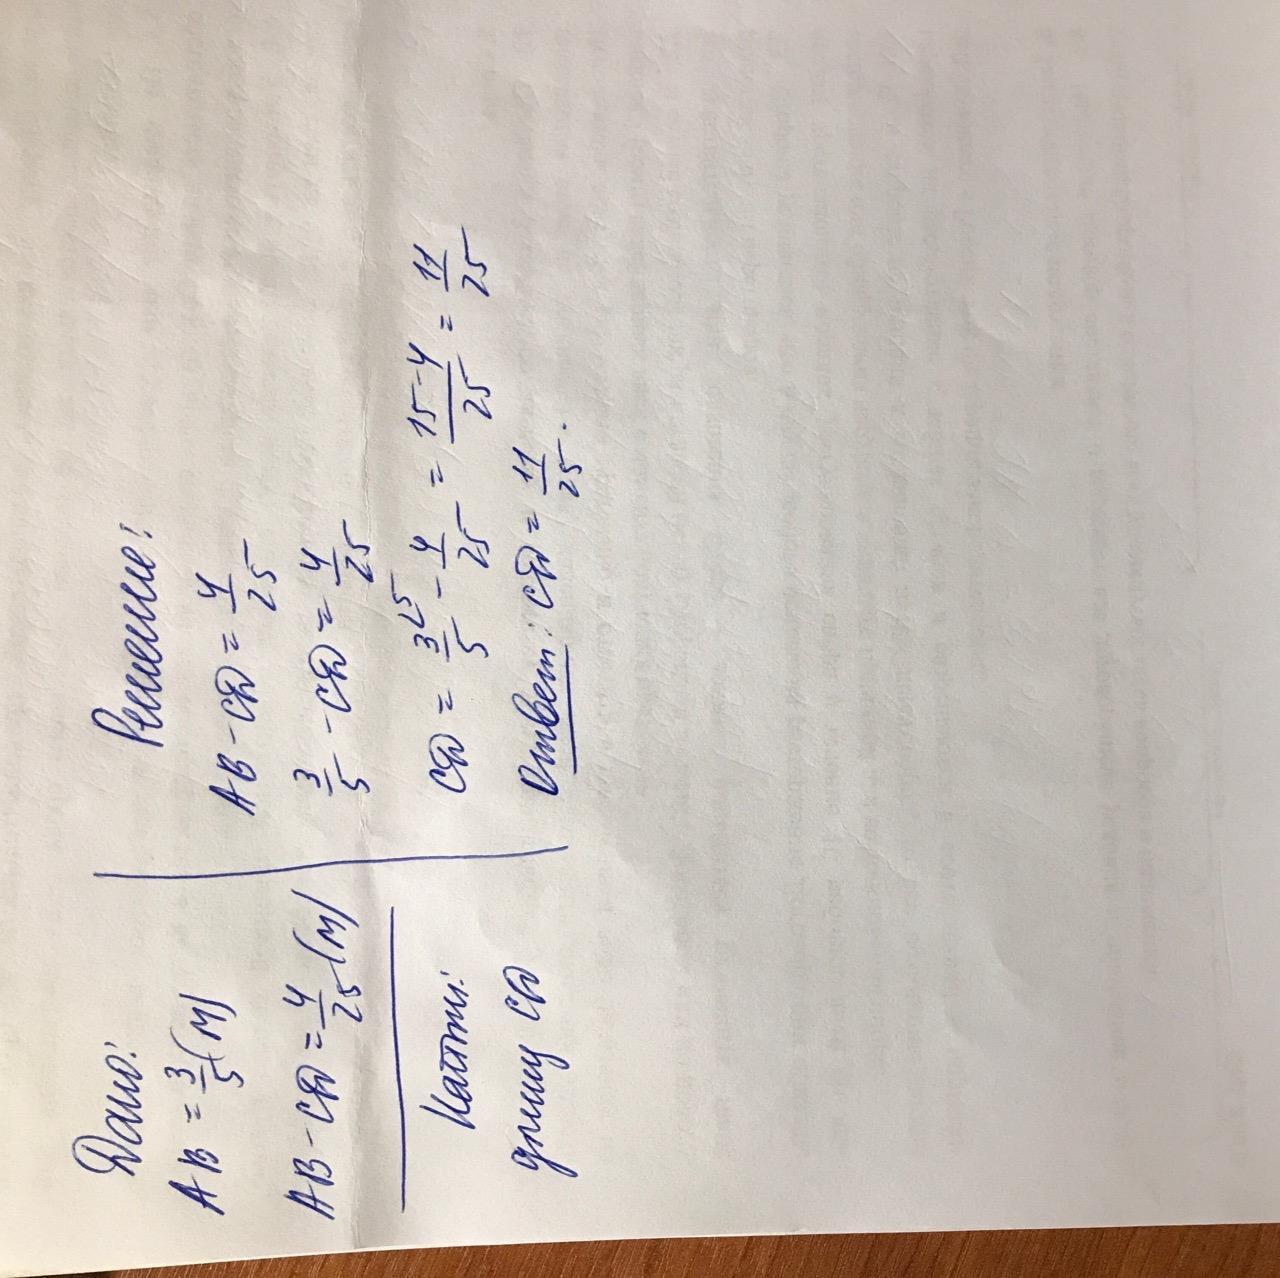 Дано:
AB = 3/5 (м)
AB - CD = 4/25 (м)
Найти:
длину CD
Решение:
AB - CD = 4/25
3/5 - CD = 4/25
CD = 3/5 ⌊5 - 4/25 = 15-4/25 = 11/25
Ответ: CD = 11/25.